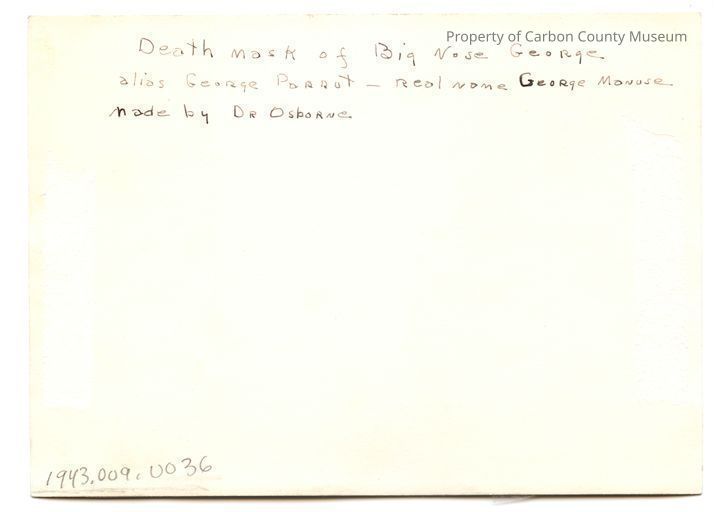 Property of Carbon County Museum
Death mask of Big Nose George
alias George Parrot — real name George Manuse
made by Dr Osborne
1943.009.U036